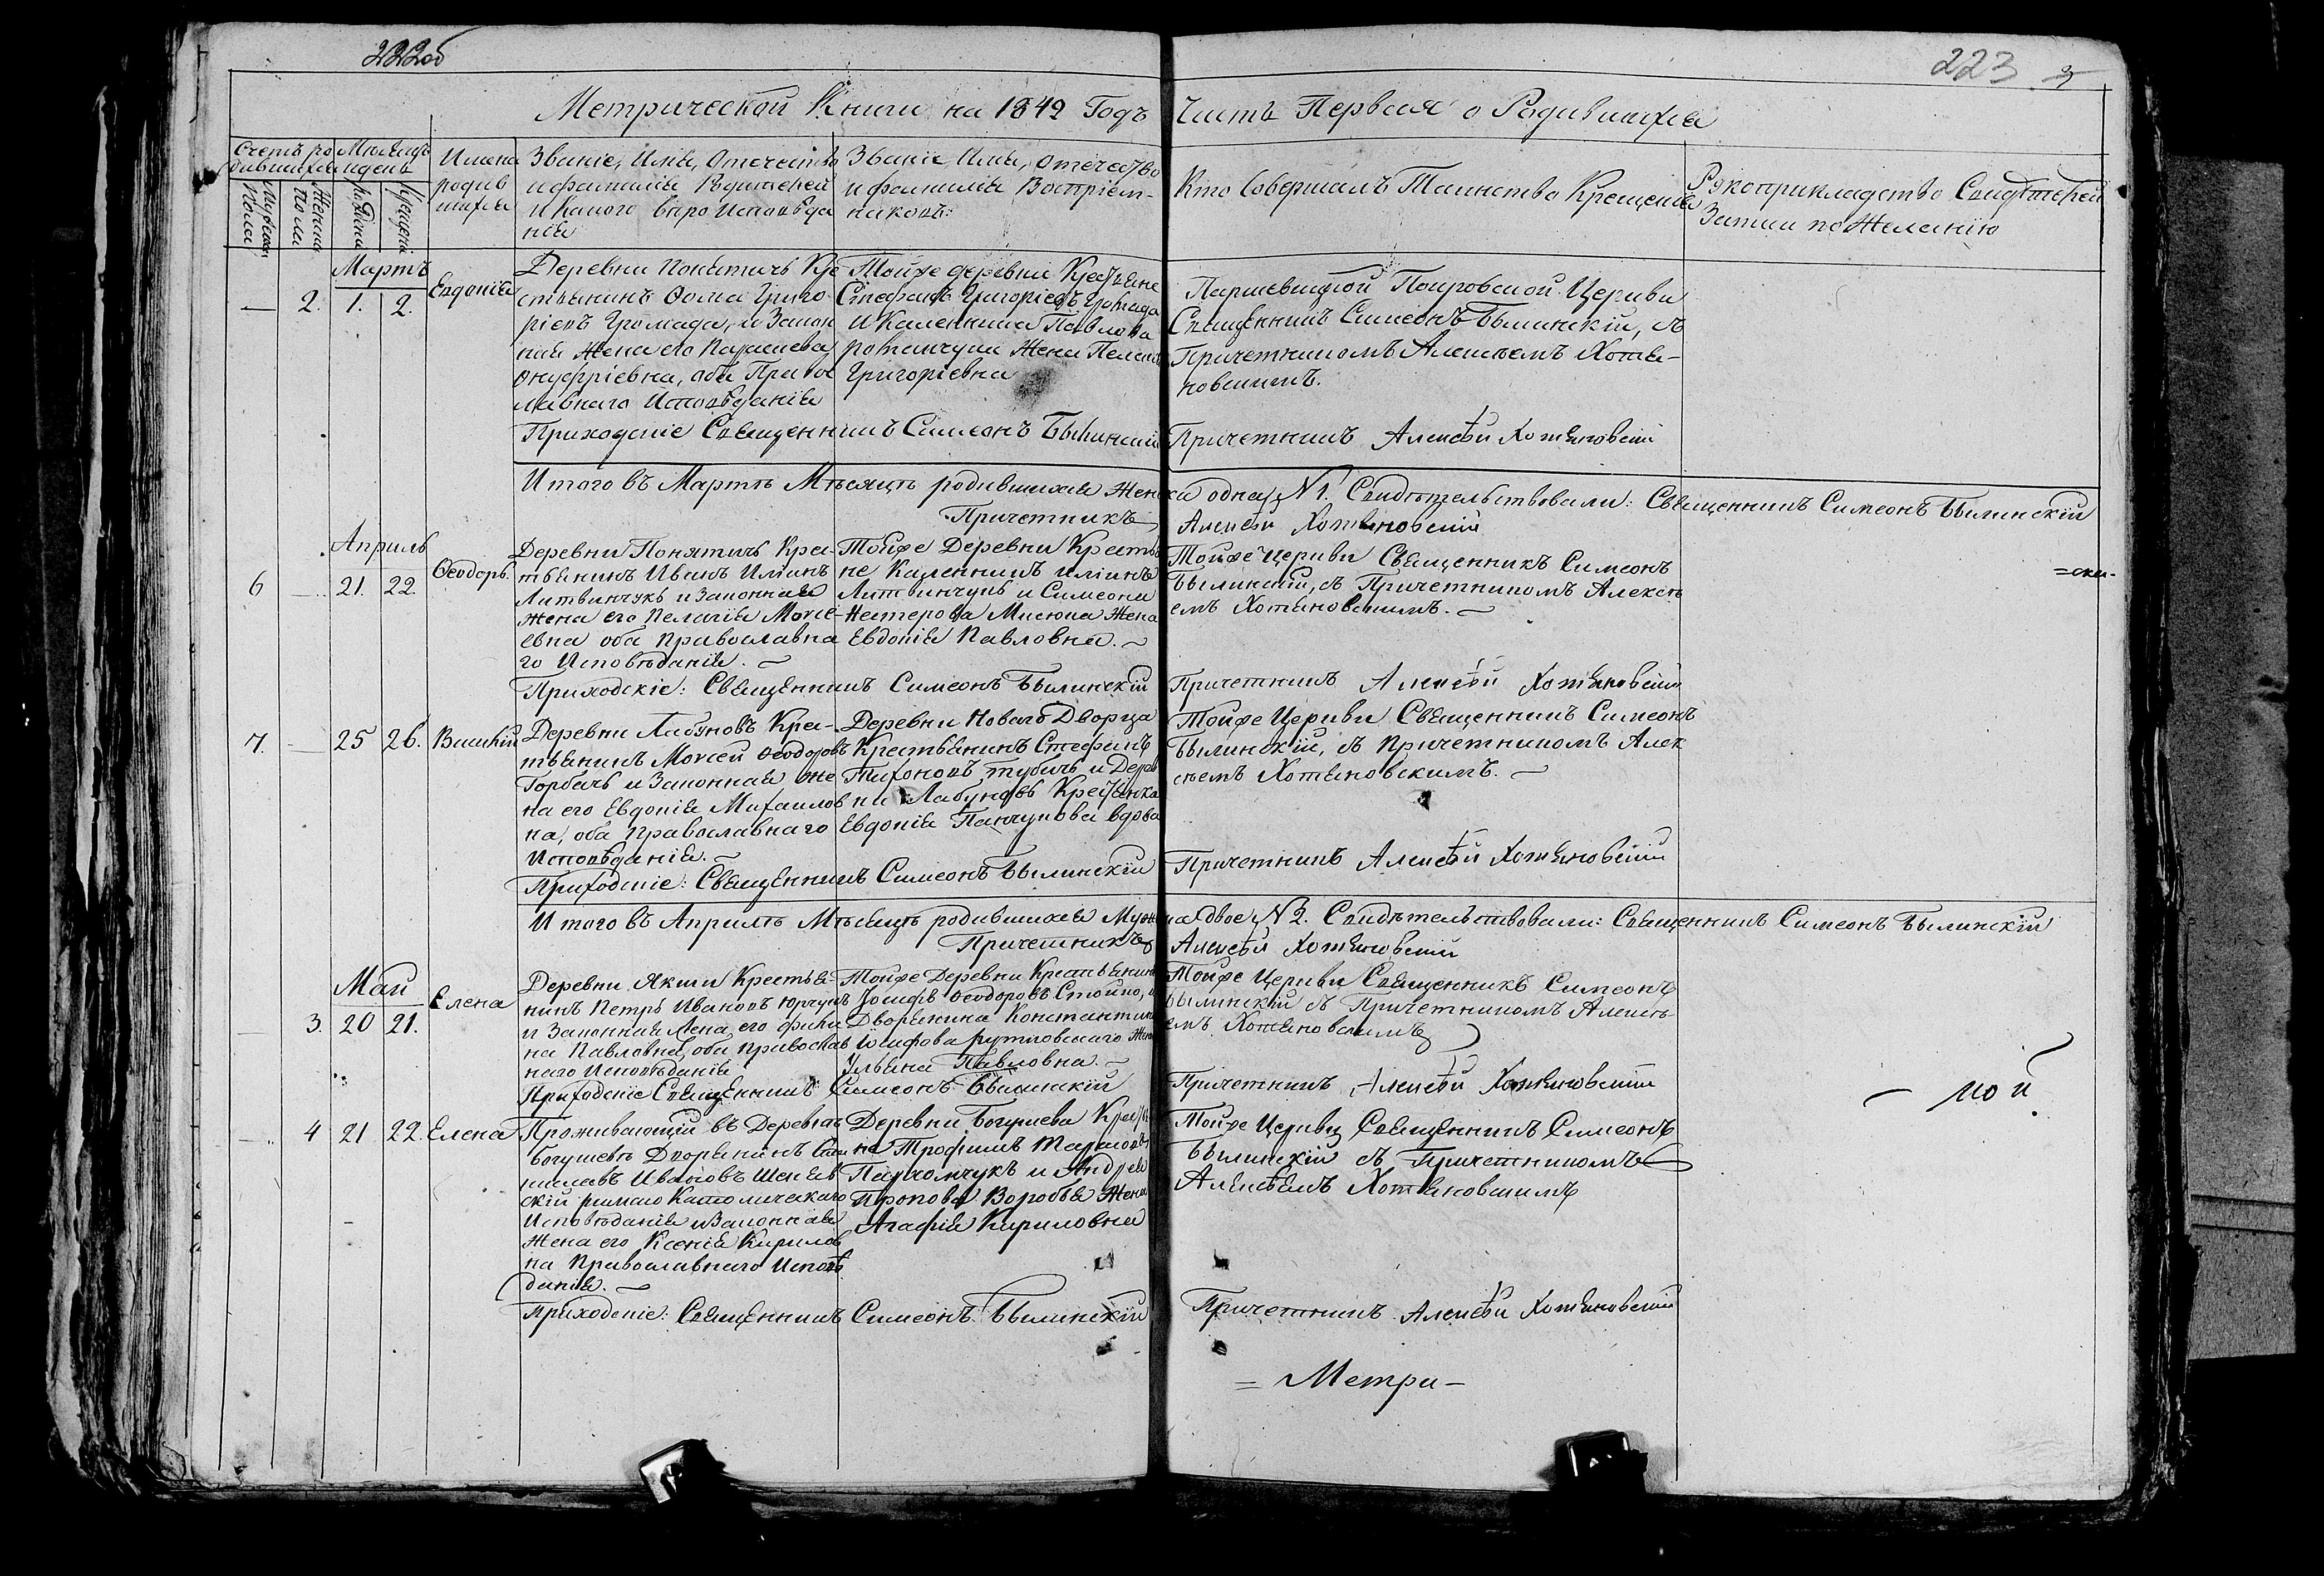 222об
223
Метрической Книги на 1842 Годъ Часть Первая о Родившихся
Счетъ ро
дившихся
Мѣсяцъ
и день
Имена
родив
шихся
Званіе, Имя, Отечество
и фамилія Родителей
и какого вѣроисповѣда
нія
Званіе Имя, Отечество
и фамилія Воспріем-
никовъ:
Кто Совершалъ Таинство Крещенія
Рукоприкладство Свидѣтелей
Записи по Желанію
Мартъ
2. 1. 2.
Евдокія
Деревни Понятичъ Кре
стьянинъ Ѳома Григо
ріевъ Громада, и Закон
ная Жена его Параскева
Онуфріевна, оба Право
славнаго Исповѣданія
Тойже деревни Крестьяне
Стефанъ Григоріевъ Громада
и Каленника Павлова
Жена Пелагія
Григоріевна
Покровской Церкви
Священникъ Симеонъ Былинскій, съ
Причетникомъ Алексѣемъ Хотя-
новскимъ.
Приходскіе Священникъ Симеонъ Былинскій Причетникъ Алексѣй Хотяновскій
Итого въ Мартѣ Мѣсяцѣ родившихся Женска одна, № 1. Свидѣтельствовали: Священникъ Симеонъ Былинскій
Причетникъ Алексѣй Хотяновскій
Апрѣль
6 — 21. 22.
Ѳеодоръ.
Деревни Понятичъ Кре-
стьянинъ Иванъ Иліинъ
Литвинчукъ и Законная
Жена его Пелагія Моисе-
евна оба Православна
го Исповѣданія. —
Тойже Деревни Крестья
не Каленникъ Иліинъ
Литвинчукъ и Симеона
Нестерова Мисюка Жена
Евдокія Павловна. —
Тойже Церкви Священникъ Симеонъ
Былинскій, съ Причетникомъ Алексѣ
емъ Хотяновскимъ. —
=ска-
Приходскіе: Священникъ Симеонъ Былинскій Причетникъ Алексѣй Хотяновскій
7. — 25 26.
Василій
Деревни Лабуновъ Кре-
стьянинъ Моисей Ѳеодоровъ
Горбачъ и Законная Же
на его Евдокія Михаилов
на, оба Православнаго
Исповѣданія. —
Деревни Новаго Дворца
Крестьянинъ Стефанъ
Тихоновъ Губичъ и Дерев
ни Лабуновъ Крестьянка
Евдокія Панчукова вдова
Тойже Церкви Священникъ Симеонъ
Былинскій, съ Причетникомъ Алек
сѣемъ Хотяновскимъ. —
Приходскіе: Священникъ Симеонъ Былинскій Причетникъ Алексѣй Хотяновскій
Итого въ Апрѣлѣ Мѣсяцѣ родившихся Мужеска двое № 2. Свидѣтельствовали: Священникъ Симеонъ Былинскій
Причетникъ Алексѣй Хотяновскій
Май
— 3. 20 21.
Елена
Деревни Якши Крестья-
нинъ Петръ Ивановъ Юрчукъ
и Законная Жена его
на Павловна, оба Православ
наго Исповѣданія
Тойже Деревни Крестьянинъ
Іосифъ Ѳеодоровъ Стойко, и
Дворянина Константина
Іосифова Рутковскаго Жена
Ульяна Павловна. —
Тойже Церкви Священникъ Симеонъ
Былинскій съ Причетникомъ Алексѣ-
емъ Хотяновскимъ
Приходскіе Священникъ Симеонъ Былинскій Причетникъ Алексѣй Хотяновскій
— кой
— 4 21 22.
Елена
Проживающій въ Деревнѣ
Богушевѣ Дворянинъ Ста
ниславъ Ивановъ
скій римско Католическаго
Исповѣданія и Законная
Жена его Ксенія Кирилов
на Православнаго Исповѣ
данія. —
Деревни Богушева Крестья
не Трофимъ Марковъ
Пархомчукъ и Андрея
Прокова Воробья Жена
Агафія Кириловна
Тойже Церкви Священникъ Симеонъ
Былинскій съ Причетникомъ
Алексѣемъ Хотяновскимъ
Приходскіе: Священникъ Симеонъ Былинскій Причетникъ Алексѣй Хотяновскій
= Метри —